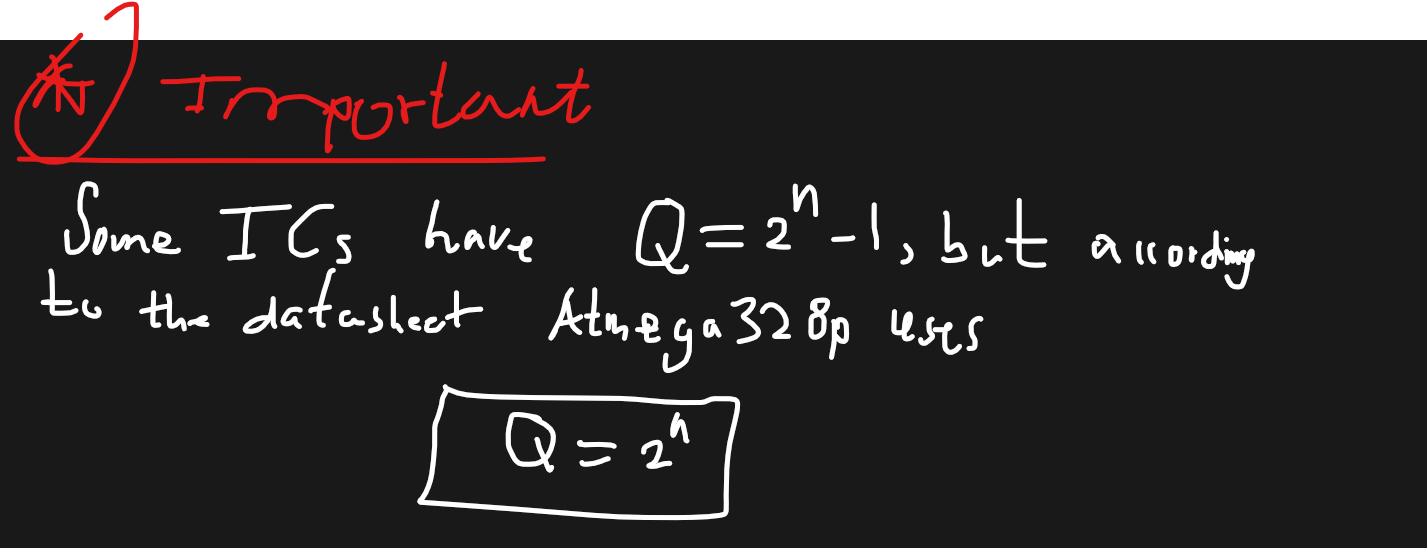 Important
Some ICs have Q = 2ⁿ - 1, but according
to the datasheet Atmega328p uses
Q = 2ⁿ